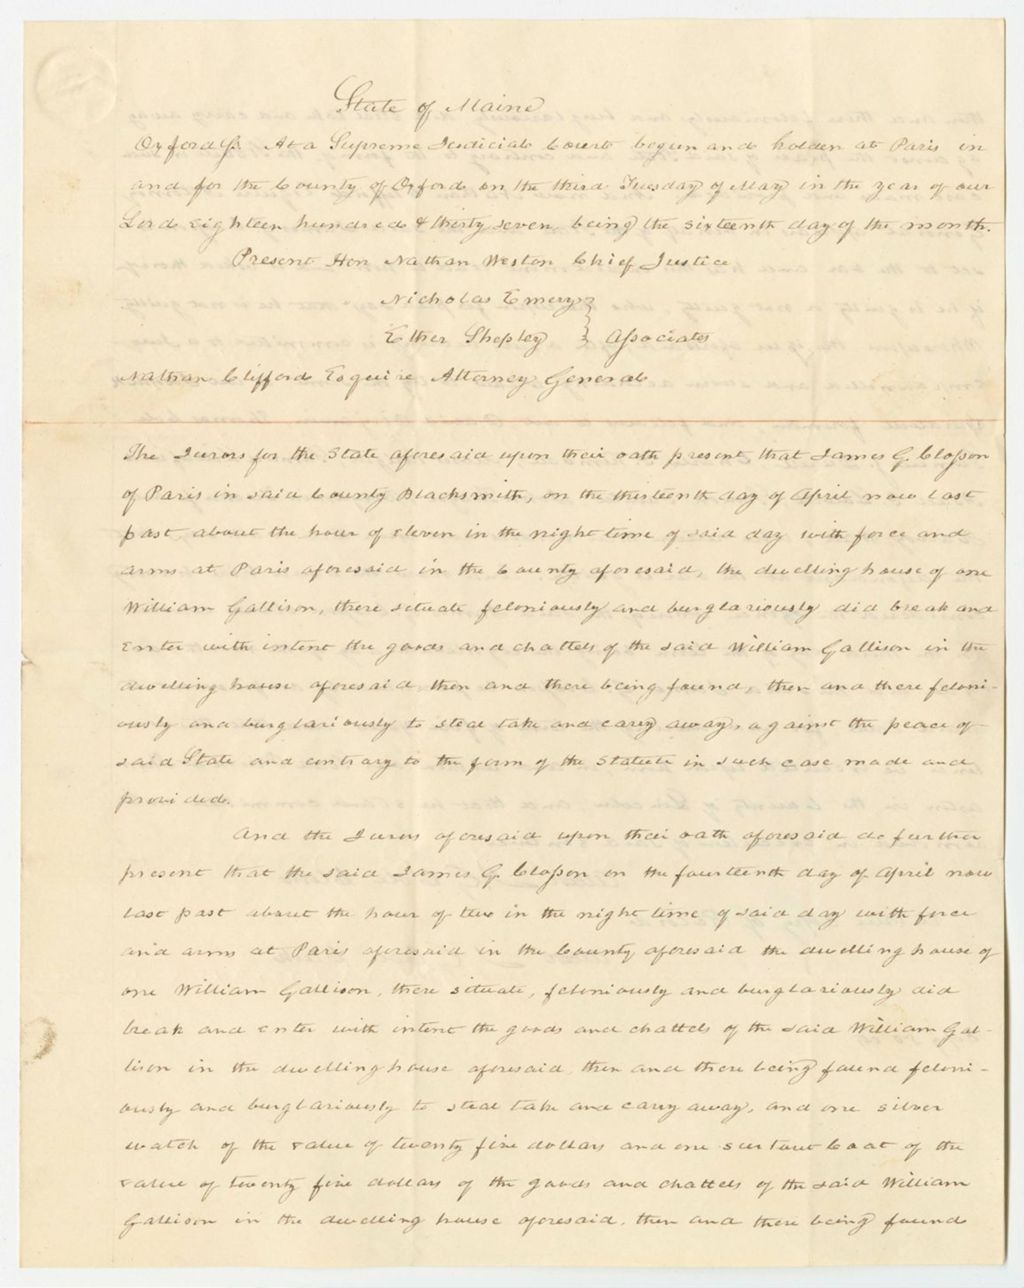 State of Maine
Oxford ss. At a Supreme Judicial Court begun and holden at Paris in
and for the County of Oxford on the third Tuesday of May in the year of our
Lord Eighteen hundred & thirty seven, being the sixteenth day of the month.
Present Hon Nathan Weston Chief Justice
Nicholas Emery }
Ether Shepley } Associates
Nathan Clifford Esquire Attorney General
The Jurors for the State aforesaid upon their oath present that James G. Closson
of Paris in said County Blacksmith, on the thirteenth day of April now last
past, about the hour of eleven in the night time of said day with force and
arms at Paris aforesaid in the County aforesaid, the dwelling house of one
William Gallison, there situate feloniously and burglariously did break and
Enter with intent the goods and chattels of the said William Gallison in the
dwelling house aforesaid then and there being found, then and there feloni-
ously and burglariously to steal take and carry away, against the peace of
said State and contrary to the form of the Statute in such case made and
provided.
And the Jurors aforesaid upon their oath aforesaid do further
present that the said James G. Closson on the fourteenth day of April now
last past about the hour of two in the night time of said day with force
and arms at Paris aforesaid in the County aforesaid the dwelling house of
one William Gallison, there situate, feloniously and burglariously did
break and enter with intent the goods and chattels of the said William Gal-
lison in the dwelling house aforesaid then and there being found feloni-
ously and burglariously to steal take and carry away, and one silver
watch of the value of twenty five dollars and one surtout Coat of the
value of twenty five dollars of the goods and chattels of the said William
Gallison in the dwelling house aforesaid, then and there being found